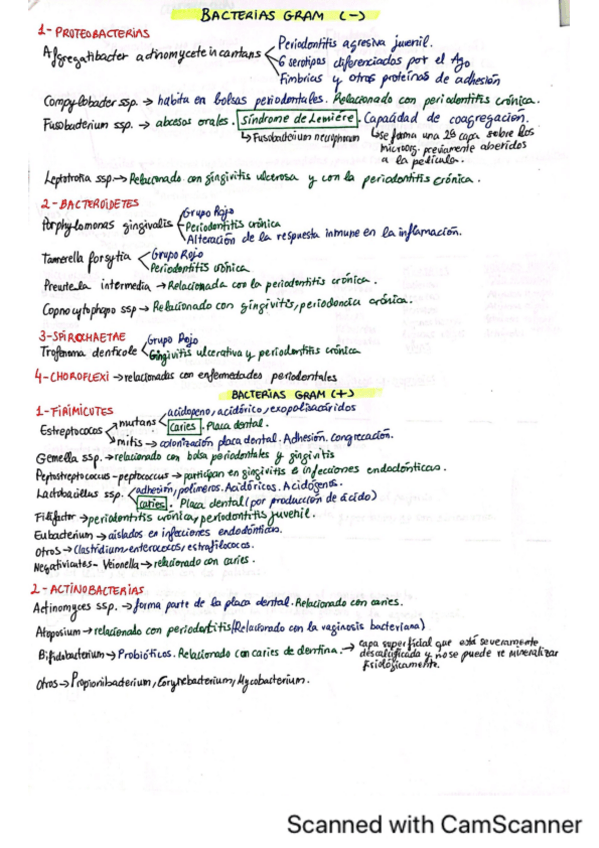 BACTERIAS GRAM (-)
1- PROTEOBACTERIAS
Periodontitis agresiva juvenil.
Afgregatibacter actinomycetemcomitans
6 serotipos diferenciados por el Ago
Fimbrias y otras proteínas de adhesión
Compylobader ssp. → habita en bolsas periodontales. Relacionado con periodontitis crónica.
Fusobacterium ssp. → abcesos orales. Síndrome de Lemiére. Capacidad de coagregación.
↳ Fusobacterium necrophorum
↳ se forma una 2ª capa sobre los
microorg. previamente aberidos
a la película.
Leptotrotia ssp → Relacionado con gingivitis ulcerosa y con la periodontitis crónica.
2- BACTEROIDETES
Grupo Rojo
Porphylomonas gingivalis
Periodontitis crónica
Alteración de la respuesta inmune en la inflamación.
Tamerella forsytia
Grupo Rojo
Periodontitis crónica
Prevutela intermedia → Relacionada con la periodontitis crónica.
Copnocytophapo ssp → Relacionado con gingivitis, periodoncia crónica.
3- SPIROCHAETAE
Grupo Rojo
Trofonoma denticole
Gingivitis ulcerativa y periodontitis crónica
4- CHOROFLEXI → relacionadas con enfermedades periodontales
BACTERIAS GRAM (+)
1- FIRIMICUTES
acidogeno, acidórico, exopolisacáridos
Estreptococos
mutans
caries. Placa dental.
mitis → colonización placa dental. Adhesión. Congrecación.
Gemella ssp. → relacionado con bolsa periodontales y gingivitis
Peptostreptococcus - peptococcus → participan en gingivitis e infecciones endodónticas.
Lactobacillus ssp.
adhesión, polímeros. Acidóricos. Acidógenos.
caries. Placa dental (por producción de ácido)
Filifactor → periodontitis crónica, periodontitis juvenil.
Eubacterium → aislados en infecciones endodónticas.
Otros → Clastridium, enterococos, estafilococos.
Negativicates - Veionella → relacionado con caries.
2- ACTINOBACTERIAS
Actinomyces ssp. → forma parte de la placa dental. Relacionado con caries.
Atoposium → relacionado con periodontitis (Relacionado con la vaginosis bacteriana)
Bifidobacterium → Probióticos. Relacionado con caries de dentina. → capa superficial que está severamente
descalcificada y no se puede re mineralizar
fisiológicamente.
Otros → Propionibacterium, Corynebacterium, Mycobacterium.
Scanned with CamScanner